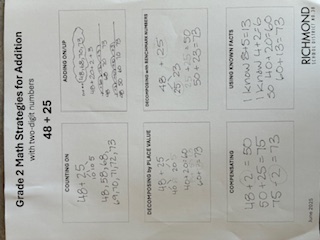 Grade 2 Math Strategies for Addition
with two-digit numbers
48 + 25
COUNTING ON
48 + 25
48, 58, 68,
69, 70, 71, 72, 73
ADDING ON/UP
48+20+2+3
DECOMPOSING by PLACE VALUE
48 + 25
40+20=60
60+ =73
DECOMPOSING with BENCHMARK NUMBERS
48 + 25
25 23
25+25=50
50+23=73
COMPENSATING
48+2=50
50+25=75
75-2=73
USING KNOWN FACTS
I know 8+5=13
I know 4+2=6
so 40+20=60
60+13=73
June 2025
RICHMOND
SCHOOL DISTRICT NO. 38